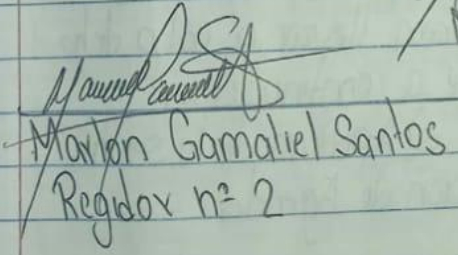 Marlon Gamaliel Santos
Regidor nº 2